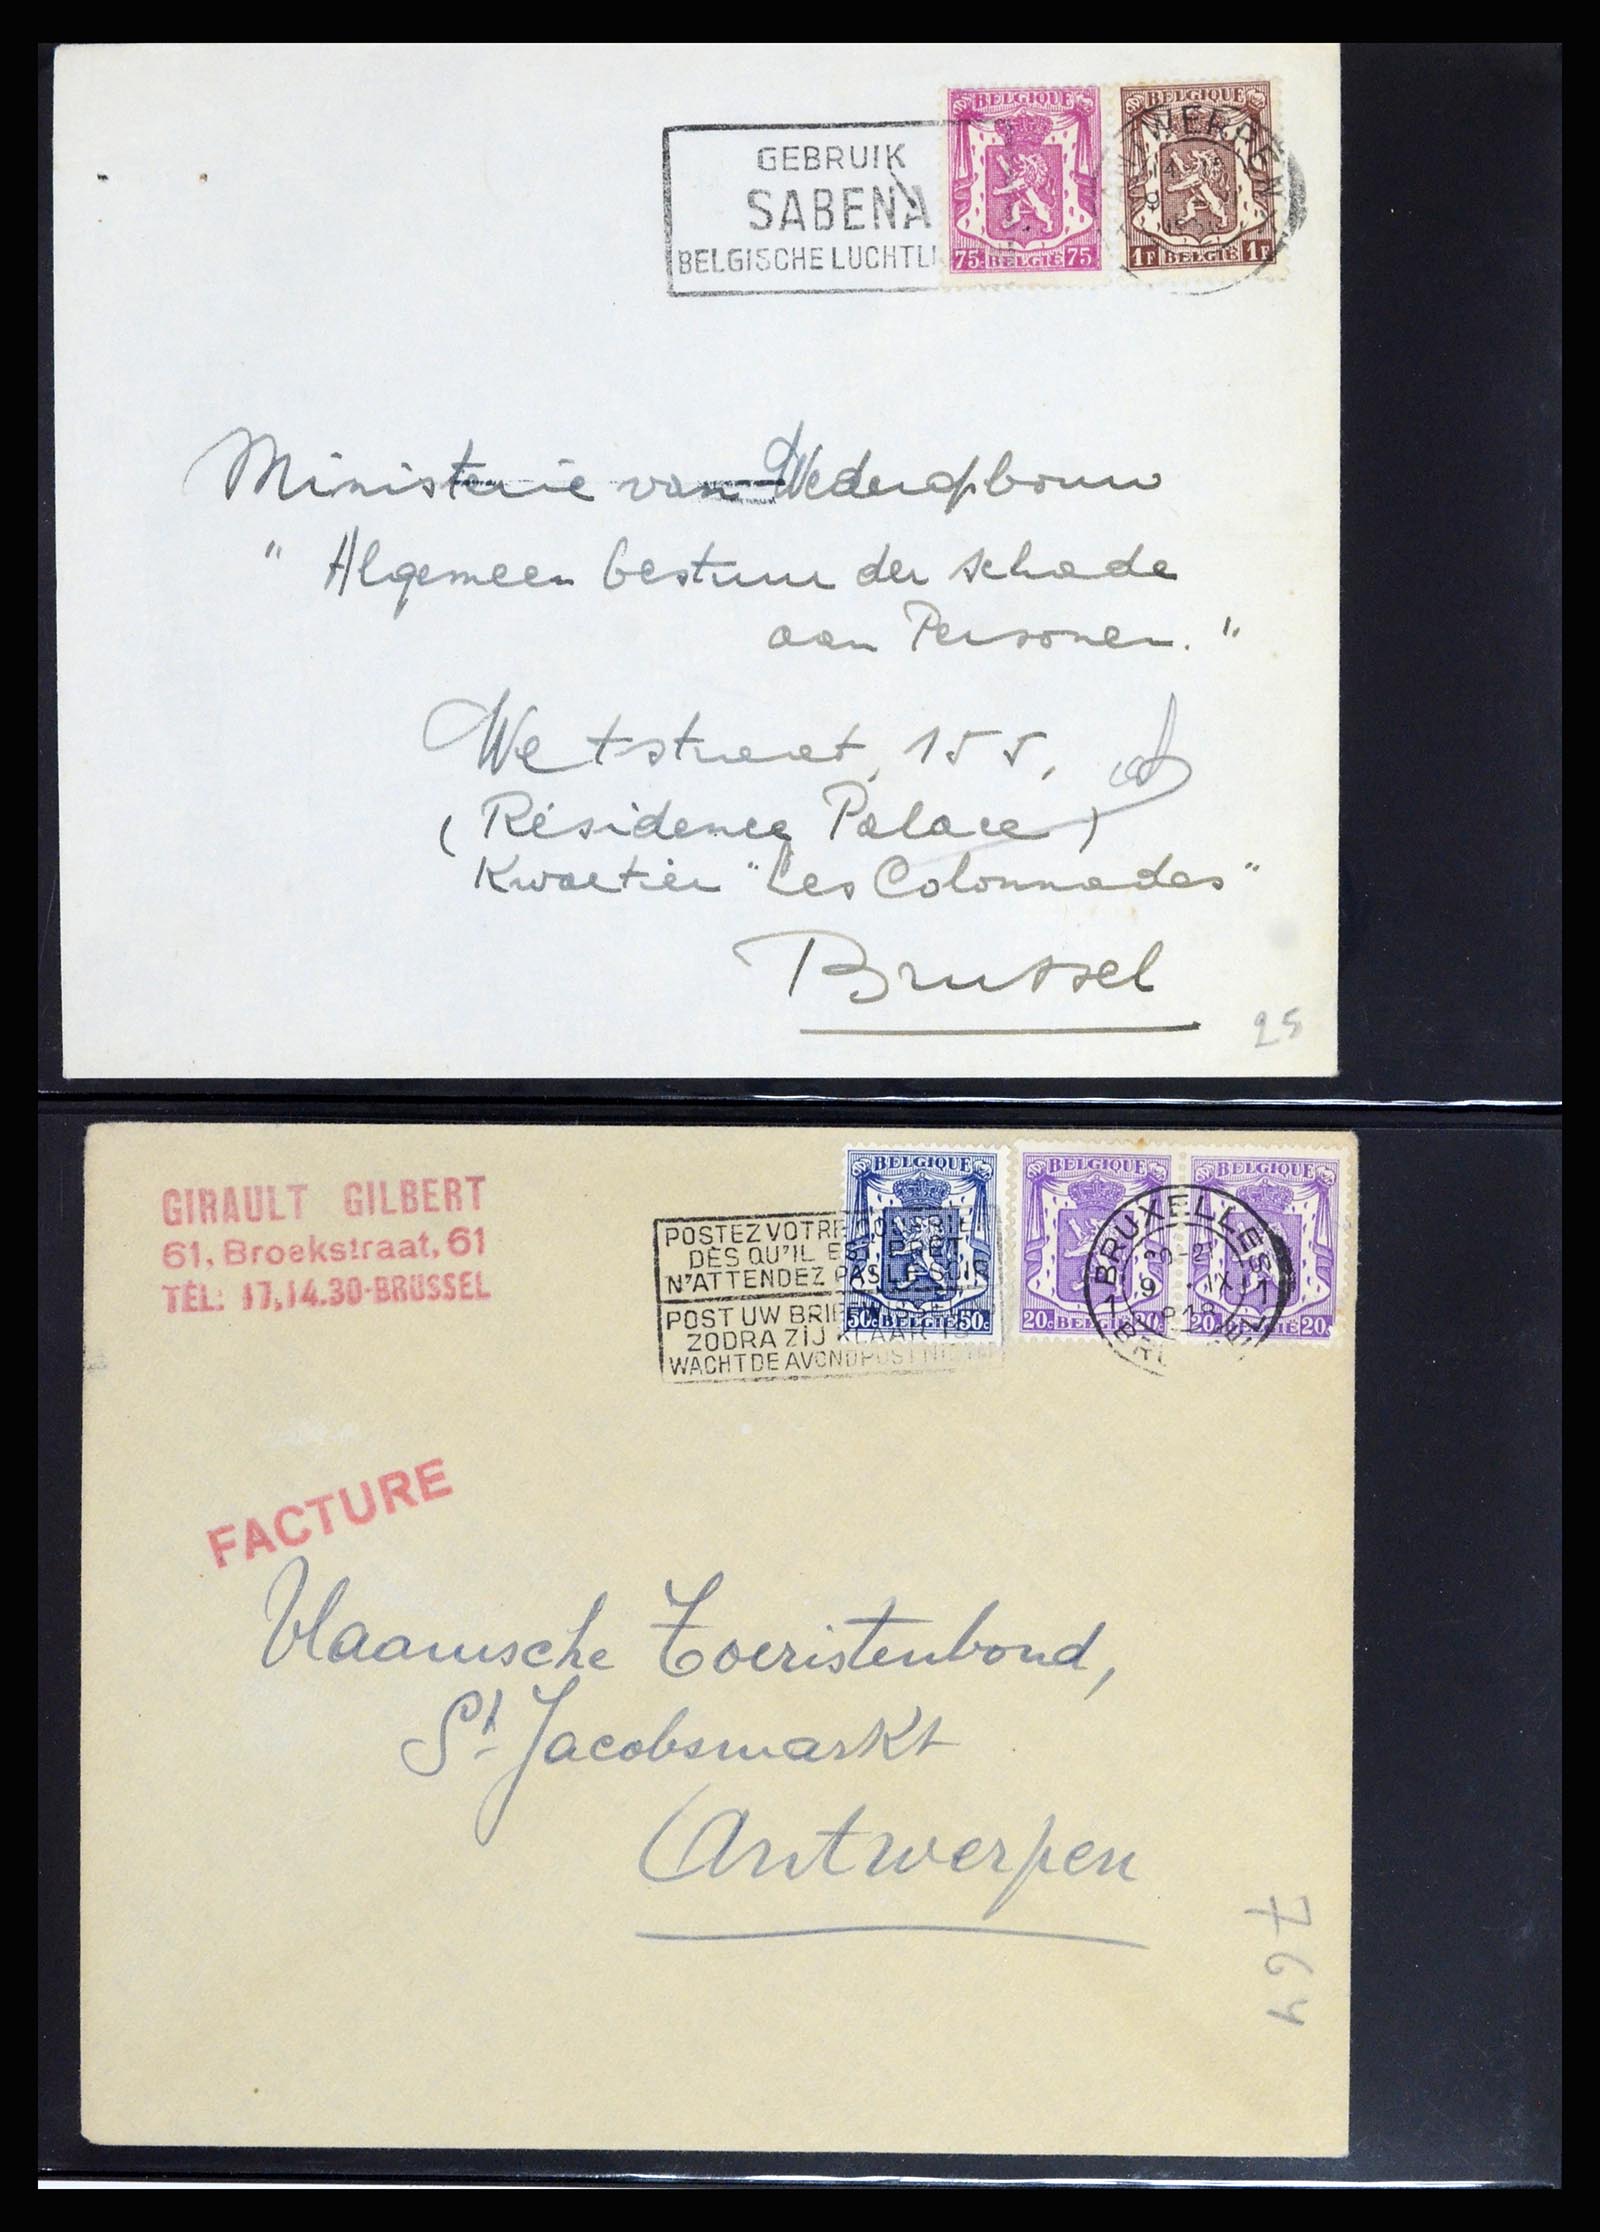 GEBRUIK
SABENA
BELGISCHE LUCHTLI
BELGIQUE
75c BELGIË 75c
BELGIQUE
1F BELGIË 1F
ANTWERPEN
Ministerie van Wederopbouw
"Algemeen bestuur der schade
aan Personen."
Wetstraat, 155,
(Résidence Palace)
Kwartier "Les Colonnades"
Brussel
25
GIRAULT GILBERT
61, Broekstraat, 61
TÉL: 17.14.30-BRUSSEL
POSTEZ VOTRE COURRIER
DÈS QU'IL EST PRÊT,
N'ATTENDEZ PAS LE SOIR
POST UW BRIEF
ZODRA ZIJ KLAAR IS
WACHT DE AVONDPOST NIET
BELGIQUE
50c BELGIË 50c
BELGIQUE
20c BELGIË 20c
BELGIQUE
20c BELGIË 20c
1 BRUXELLES 1
FACTURE
Vlaamsche Toeristenbond,
St Jacobsmarkt
Antwerpen
764